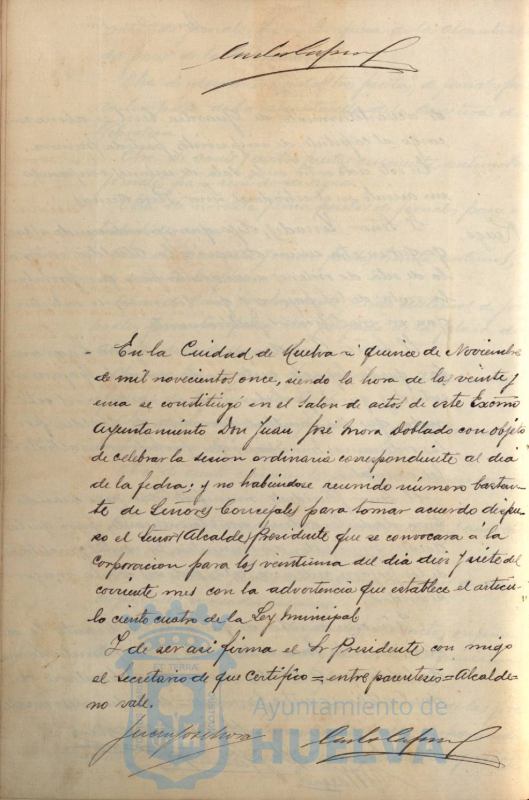 En la Cuidad de Huelva a quince de Noviembre
de mil novecientos once, siendo la hora de las veinte y
una se constituyó en el Salon de actos de este Excmo
Ayuntamiento Don Juan José Mora Doblado con objeto
de celebrar la sesion ordinaria correspondiente al dia
de la fecha; y no habiendose reunido número bastan-
te de Señores Concejales para tomar acuerdo dispu-
so el Señor (Alcalde) Presidente que se convocara á la
corporacion para las veintiuna del dia diez y siete del
corriente mes con la advertencia que establece el articu-
lo ciento cuatro de la Ley Municipal
Y de ser asi firma el Sr Presidente con migo
el Secretario de que certifico = entre parentesis = Alcalde =
no vale.
Juan José Mora
Ayuntamiento de
HUELVA